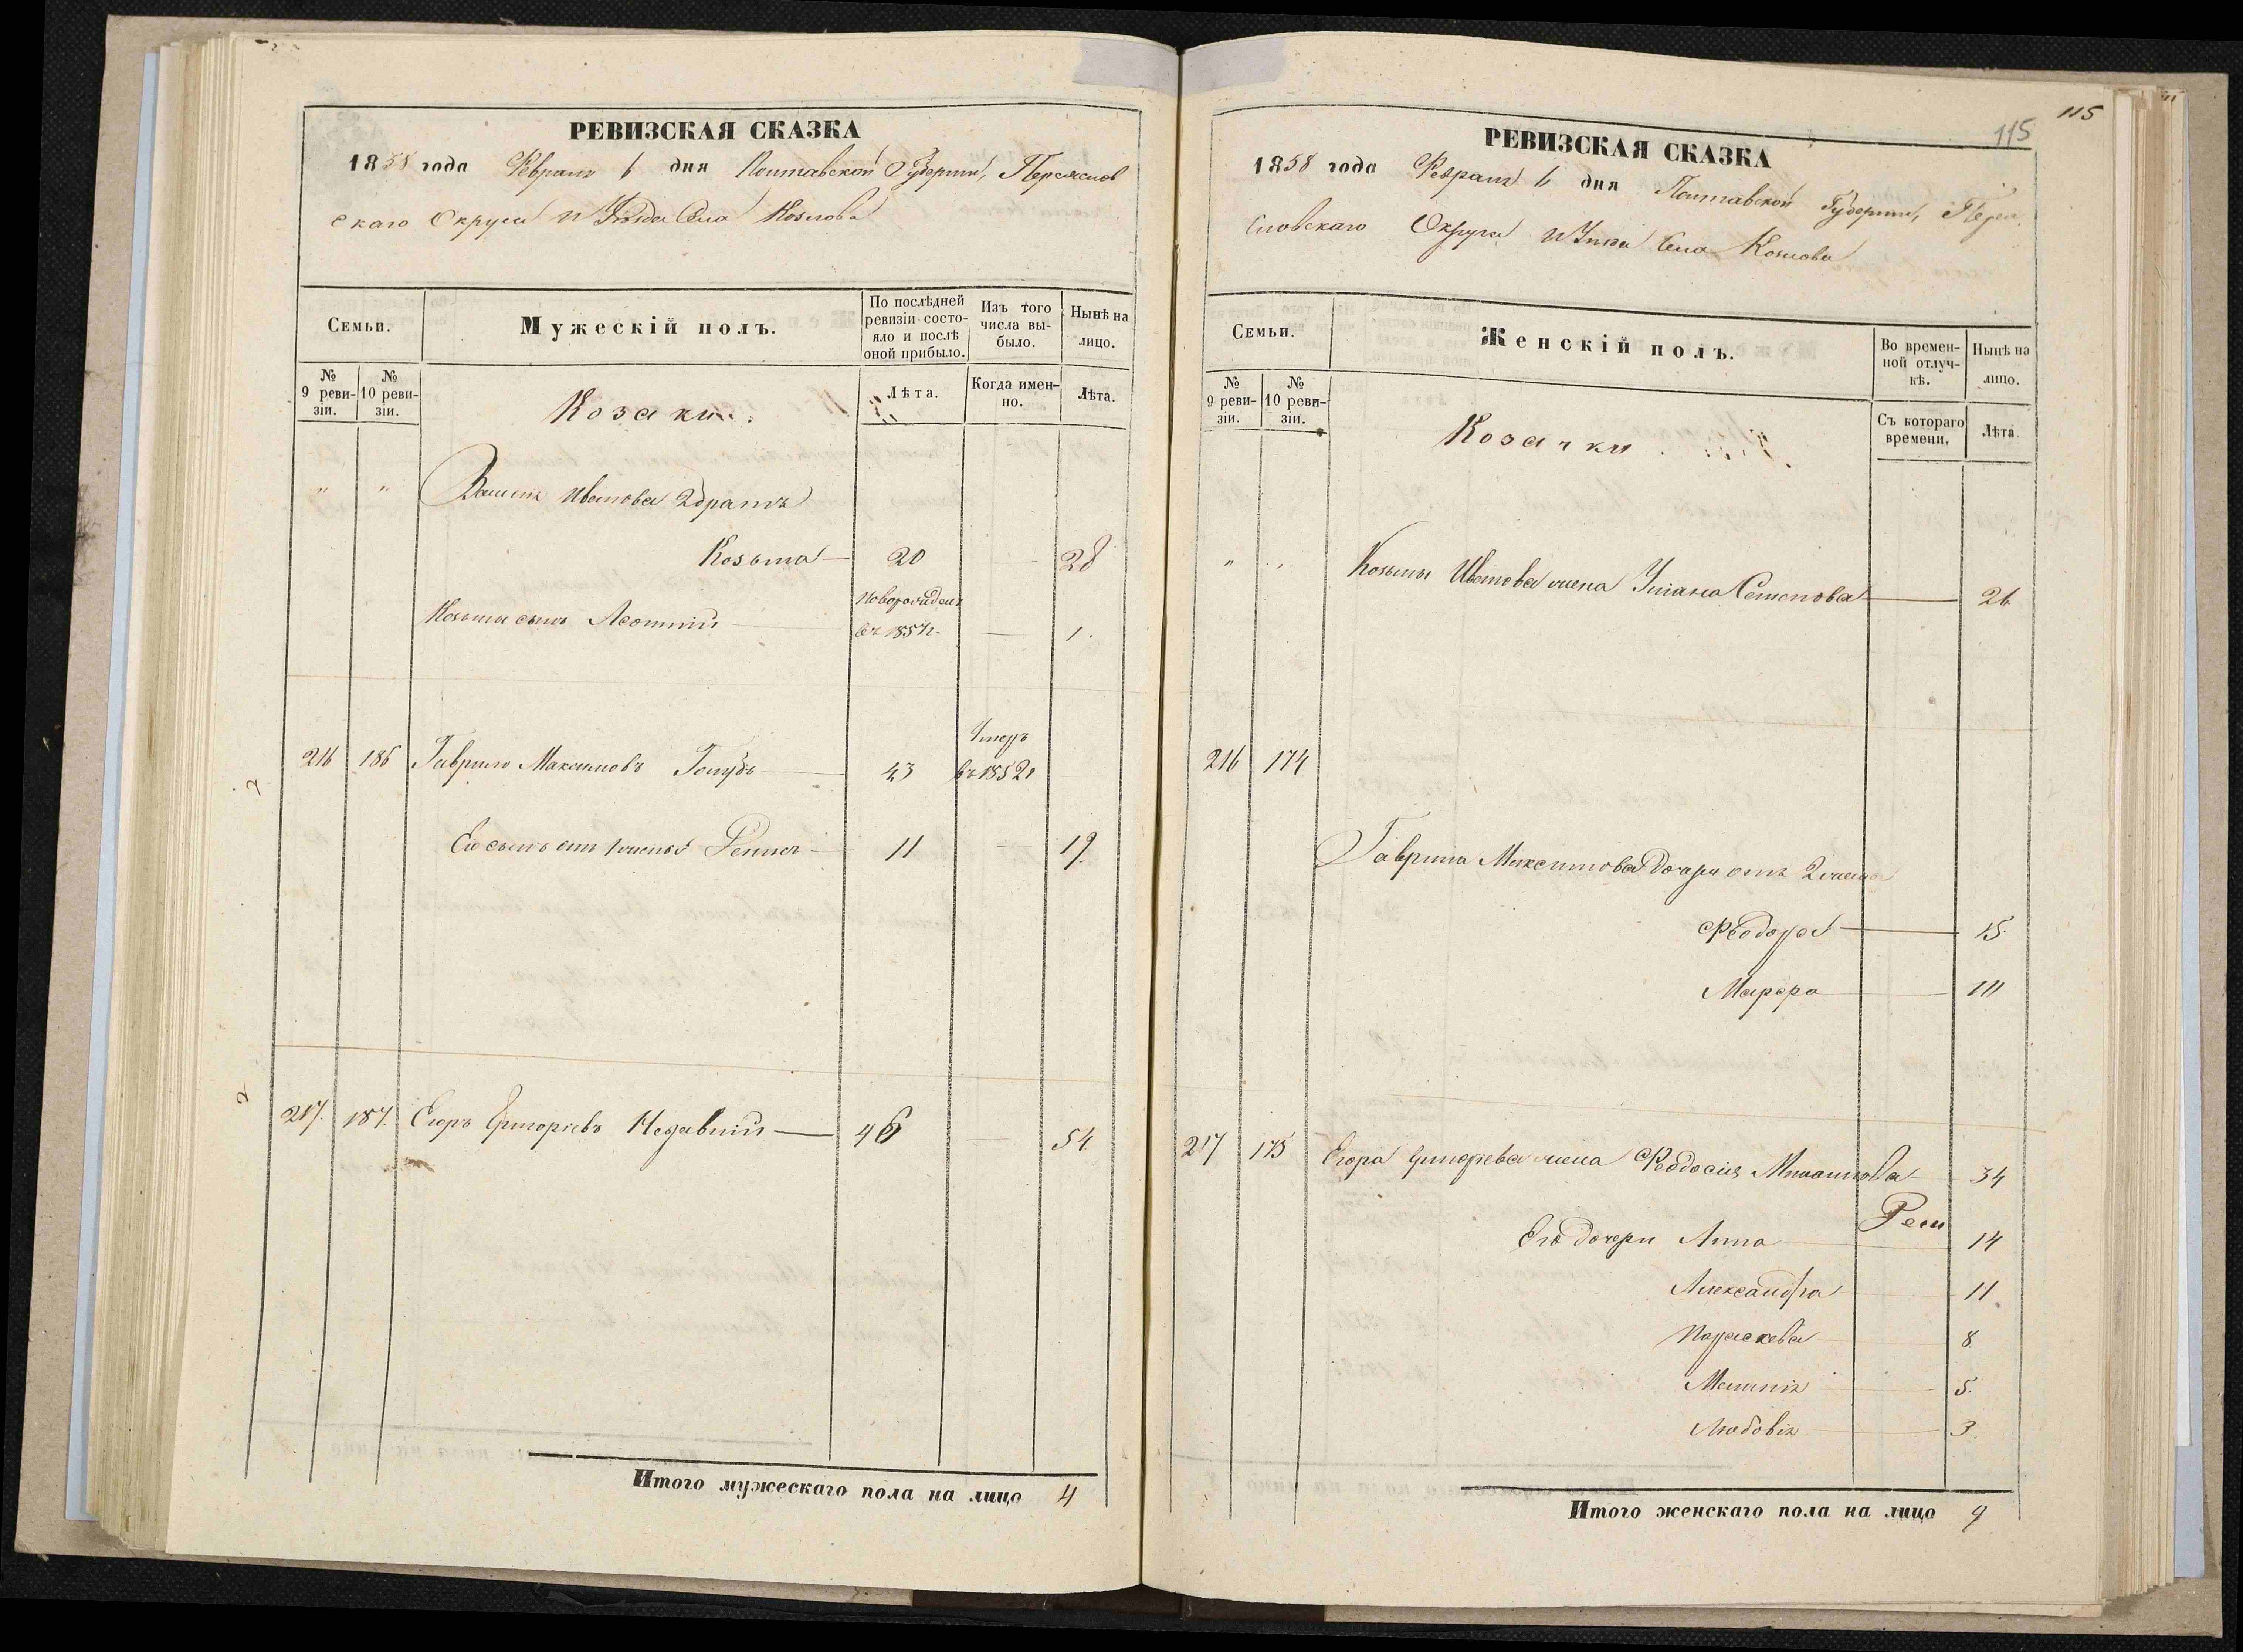 РЕВИЗСКАЯ СКАЗКА
1858 года Февраля 6 дня Полтавской Губерніи, Переяслов
скаго Округа и Уѣзда Села Козлова
Семьи.
Мужескій полъ.
По послѣдней ревизіи состояло и послѣ оной прибыло.
Изъ того числа выбыло.
Нынѣ на лицо.
№ 9 ревизіи.
№ 10 ревизіи.
Козаки.
Лѣта.
Когда именно.
Лѣта.
" " Иванова 2 братъ
Козьма 20 28
Козьмы сынъ Леонтій новорожден въ 1857 г. 1.
216 186 Гаврило Максимовъ Голубъ 43 Умеръ въ 1852 г
Его сынъ отъ 1 жены 11 19.
217. 187. Егоръ Григоріевъ 46 54
Итого мужескаго пола на лицо 4
115
115
РЕВИЗСКАЯ СКАЗКА
1858 года Февраля 6 дня Полтавской Губерніи, Перея
словскаго Округа и Уѣзда Села Козлова
Семьи.
Женскій полъ.
Во временной отлучкѣ.
Нынѣ на лицо.
№ 9 ревизіи.
№ 10 ревизіи.
Козачки
Съ котораго времени.
Лѣта
" " Козьмы Иванова жена Уліана Семенова 26
216 174
Гаврила Максимова дочери отъ 2 жены
Феодора 15.
Марфа
217 175 Егора Григорiева жена Феодосія 34
Его дочери Анна 14
Александра 11
Параскева 8.
5.
Любовія 3.
Итого женскаго пола на лицо 9